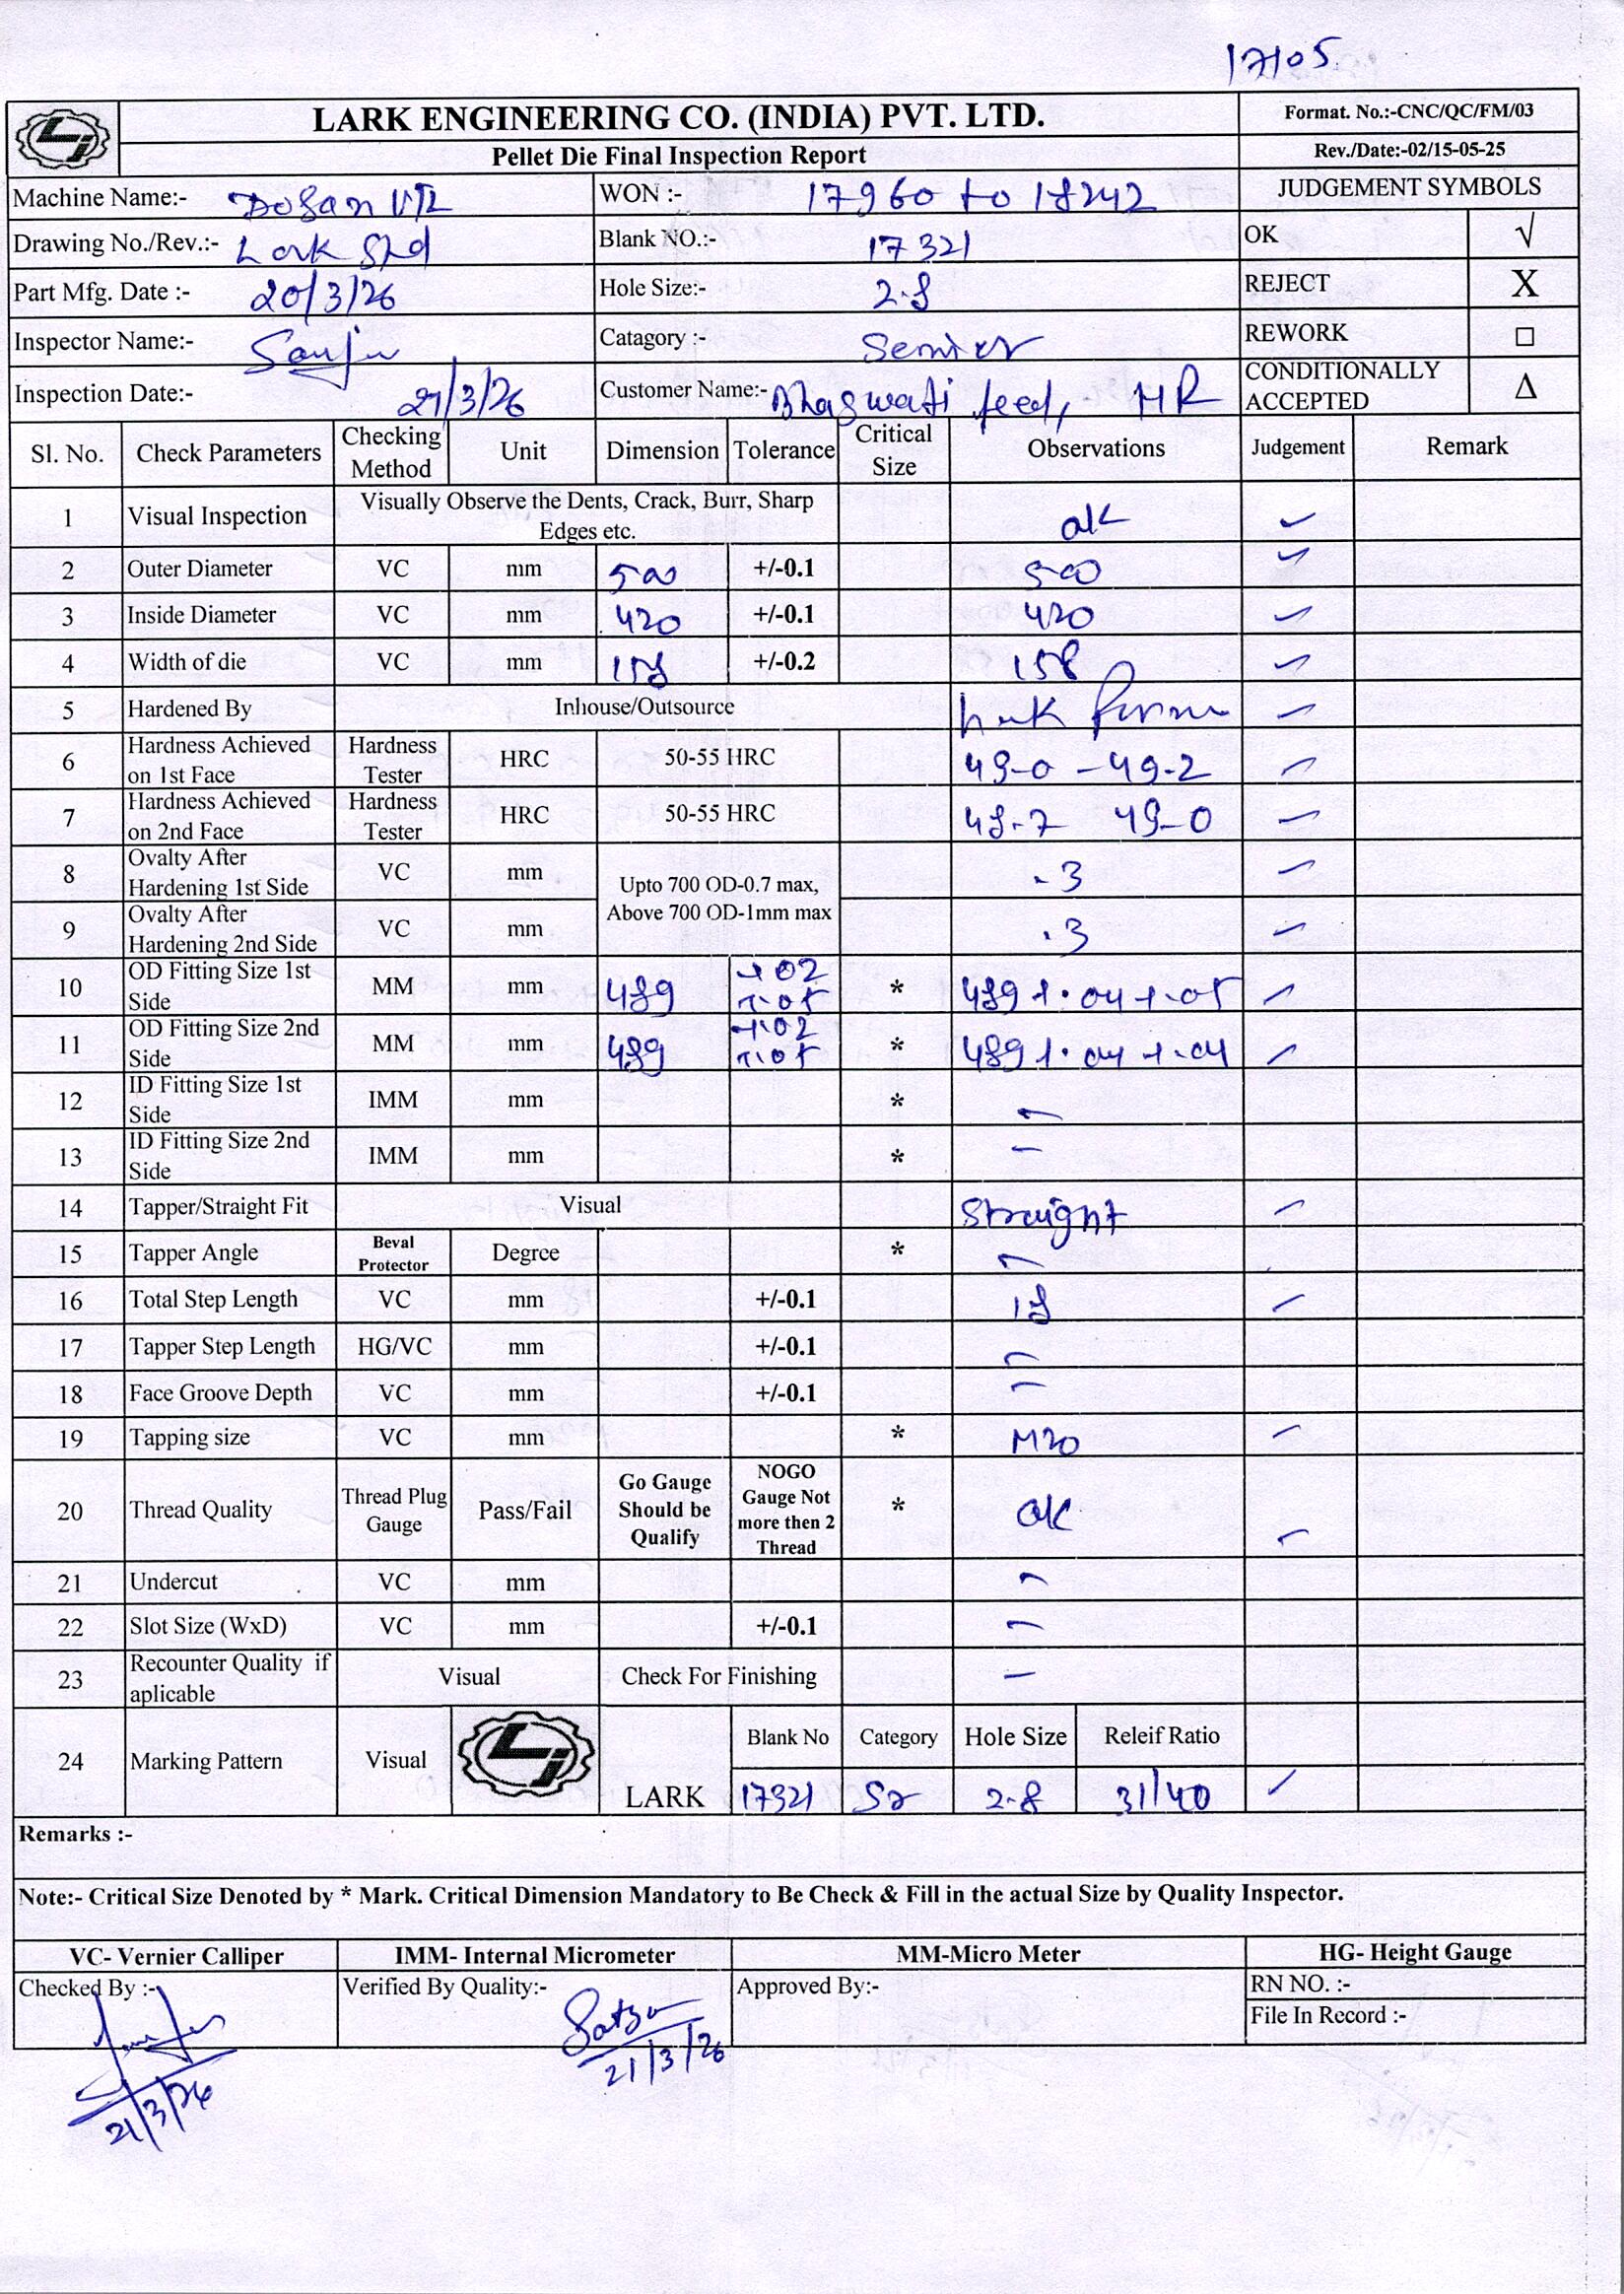 17105
LARK ENGINEERING CO. (INDIA) PVT. LTD.
Format. No.:-CNC/QC/FM/03
Pellet Die Final Inspection Report
Rev./Date:-02/15-05-25
Machine Name:- Dosan VTL WON :- 17960 to 18242 JUDGEMENT SYMBOLS
Drawing No./Rev.:- Lark Std Blank NO.:- 17321 OK √
Part Mfg. Date :- 20/3/26 Hole Size:- 2.8 REJECT X
Inspector Name:- Sanju Catagory :- Senior REWORK □
Inspection Date:- 21/3/26 Customer Name:- Bhagwati feed, HR CONDITIONALLY ACCEPTED Δ
Sl. No. Check Parameters Checking Method Unit Dimension Tolerance Critical Size Observations Judgement Remark
1 Visual Inspection Visually Observe the Dents, Crack, Burr, Sharp Edges etc. ok ✓
2 Outer Diameter VC mm 500 +/-0.1 500 ✓
3 Inside Diameter VC mm 420 +/-0.1 420 ✓
4 Width of die VC mm 158 +/-0.2 158 ✓
5 Hardened By Inhouse/Outsource ✓
6 Hardness Achieved on 1st Face Hardness Tester HRC 50-55 HRC 49-0 - 49-2 ✓
7 Hardness Achieved on 2nd Face Hardness Tester HRC 50-55 HRC 48-7 49-0 ✓
8 Ovalty After Hardening 1st Side VC mm Upto 700 OD-0.7 max, Above 700 OD-1mm max .3 ✓
9 Ovalty After Hardening 2nd Side VC mm .3 ✓
10 OD Fitting Size 1st Side MM mm 489 +.02 +.05 * 489 +.04 +.05 ✓
11 OD Fitting Size 2nd Side MM mm 489 +.02 +.05 * 489 +.04 +.04 ✓
12 ID Fitting Size 1st Side IMM mm * -
13 ID Fitting Size 2nd Side IMM mm * -
14 Tapper/Straight Fit Visual Straight ✓
15 Tapper Angle Beval Protector Degree * -
16 Total Step Length VC mm +/-0.1 18 ✓
17 Tapper Step Length HG/VC mm +/-0.1 -
18 Face Groove Depth VC mm +/-0.1 -
19 Tapping size VC mm * M20 ✓
20 Thread Quality Thread Plug Gauge Pass/Fail Go Gauge Should be Qualify NOGO Gauge Not more then 2 Thread * ok ✓
21 Undercut VC mm -
22 Slot Size (WxD) VC mm +/-0.1 -
23 Recounter Quality if aplicable Visual Check For Finishing -
24 Marking Pattern Visual LARK Blank No Category Hole Size Releif Ratio
17321 Sr 2.8 31/40 ✓
Remarks :-
Note:- Critical Size Denoted by * Mark. Critical Dimension Mandatory to Be Check & Fill in the actual Size by Quality Inspector.
VC- Vernier Calliper IMM- Internal Micrometer MM-Micro Meter HG- Height Gauge
Checked By :- Verified By Quality:- Approved By:- RN NO. :-
File In Record :-
21/3/26
21/3/26